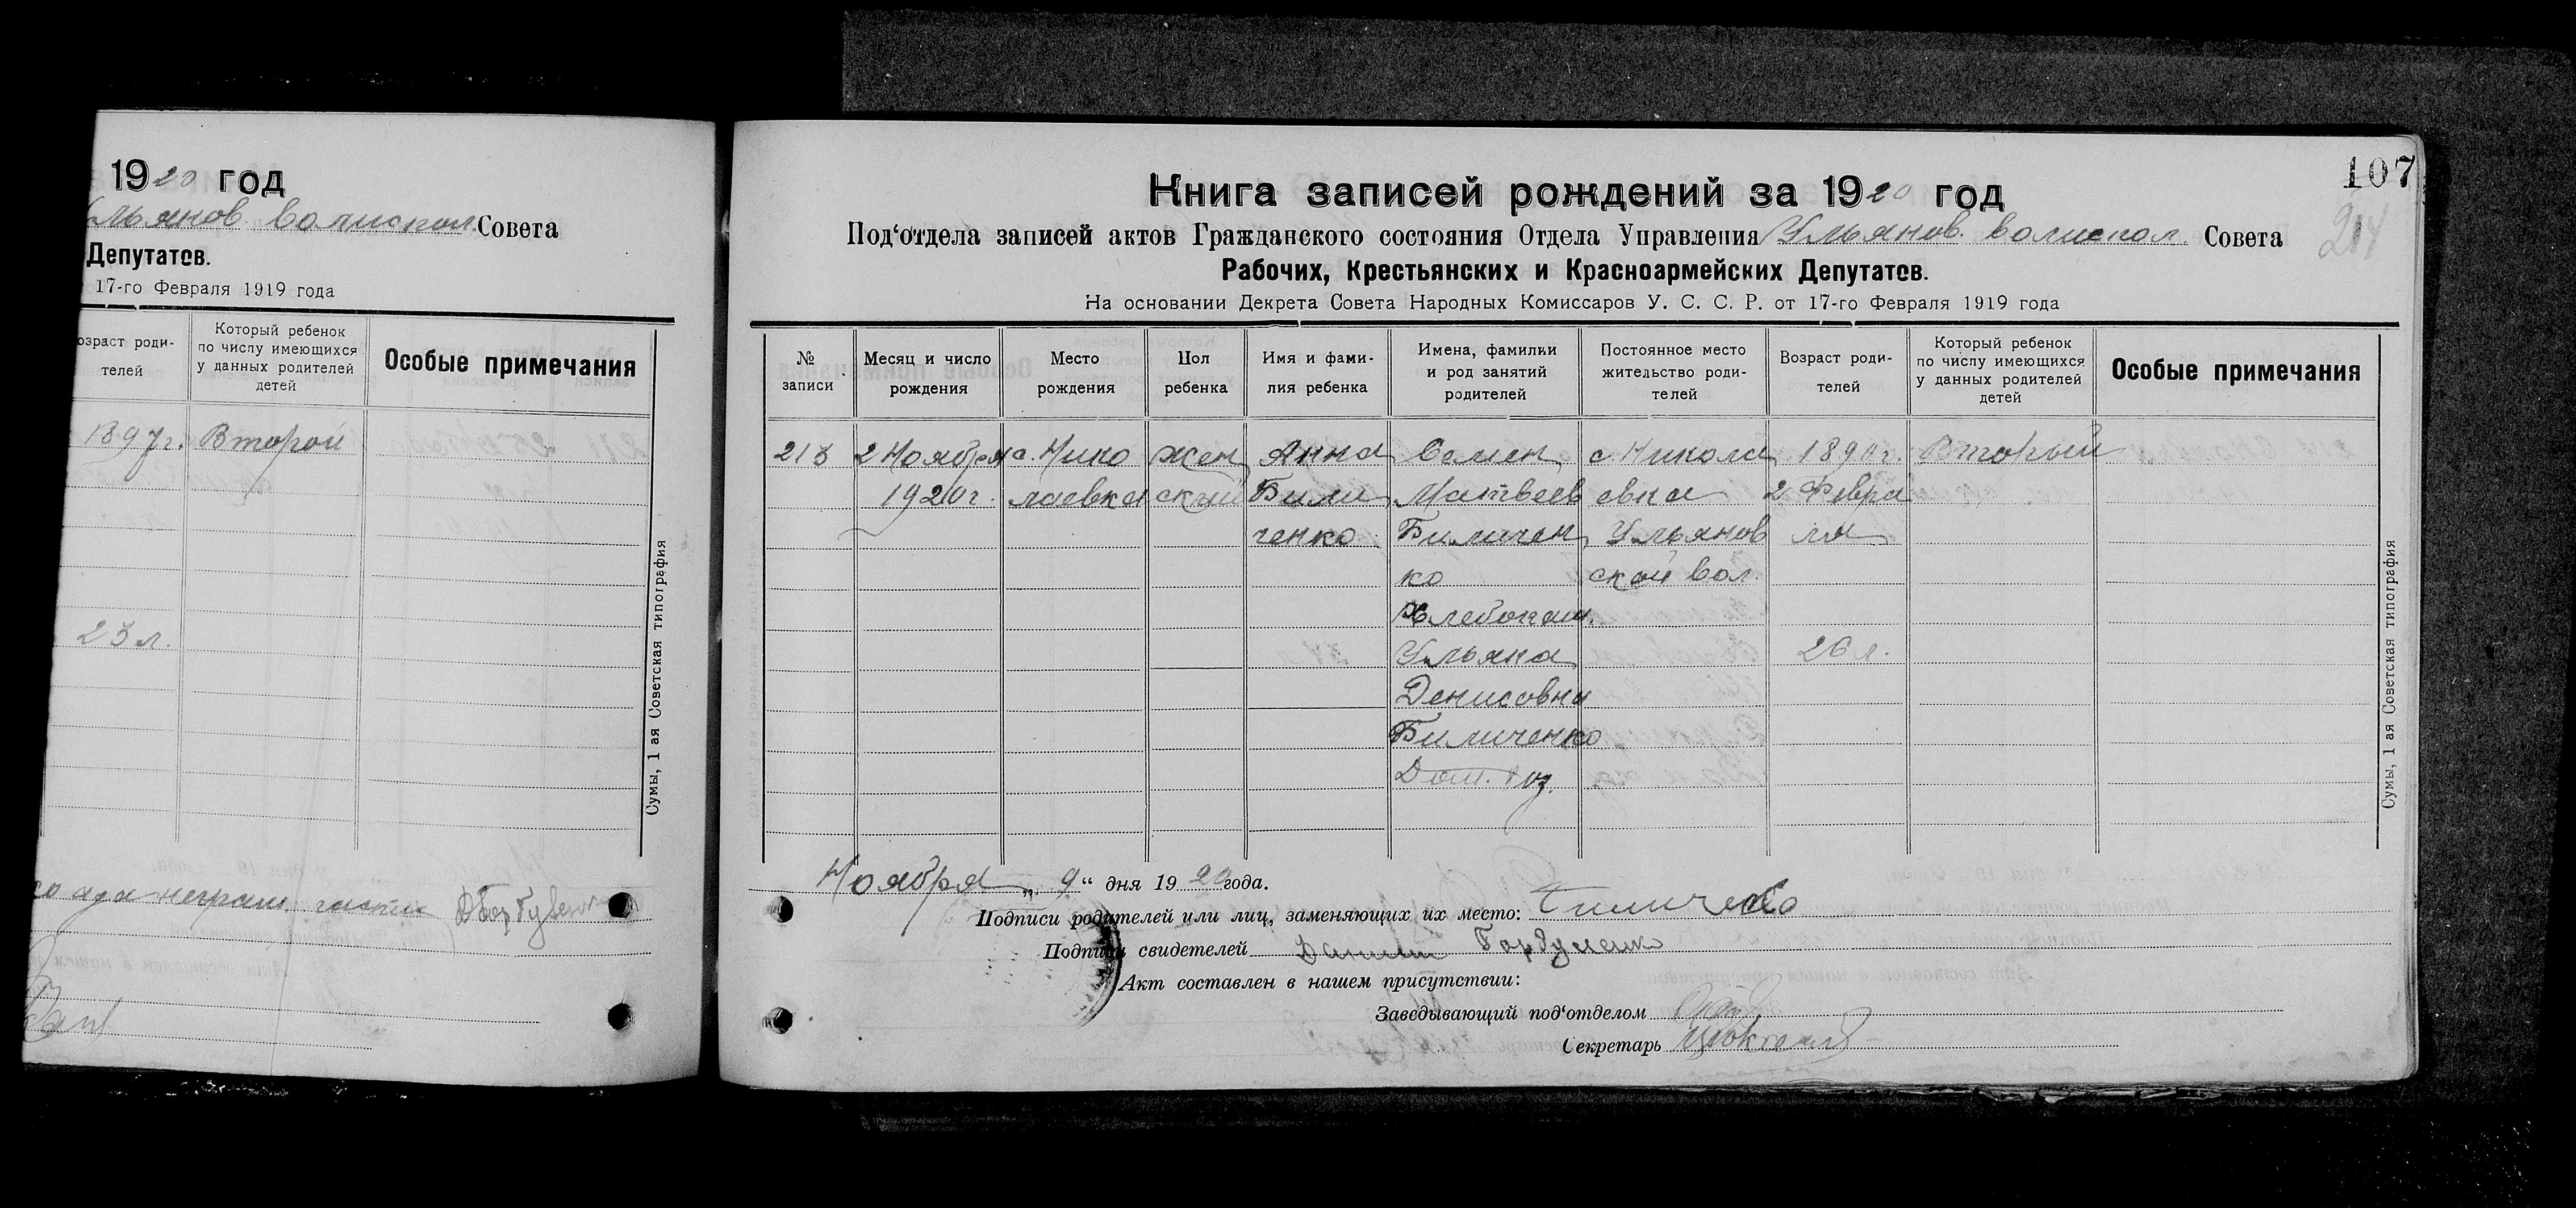 1920 год
Ульянов. волиспол. Совета
Депутатов.
17-го Февраля 1919 года
озраст роди-
телей
Который ребенок
по числу имеющихся
у данных родителей
детей
Особые примечания
1897г. Второй
23 л.
Сумы, 1 ая Советская типография
107
214
Книга записей рождений за 1920 год
Под‘отдела записей актов Гражданского состояния Отдела Управления Ульянов. волиспол. Совета
Рабочих, Крестьянских и Красноармейских Депутатов.
На основании Декрета Совета Народных Комиссаров У. С. С. Р. от 17-го Февраля 1919 года
№
записи
Месяц и число
рождения
Место
рождения
Пол
ребенка
Имя и фами-
лия ребенка
Имена, фамилии
и род занятий
родителей
Постоянное место
жительство роди-
телей
Возраст роди-
телей
Который ребенок
по числу имеющихся
у данных родителей
детей
Особые примечания
213 2 Ноября с. Нико жен Анна Семен с. Никола 1890г. Вторый
1920г. лаевка ский Били Матвеев евка 2 Февра
ченко Биличен Ульянов ля
ко ской вол.
Хлебопаш.
Ульяна 26 л.
Денисовна
Биличенко
Дом. хоз.
Ноября „ 9 “ дня 1920 года.
Подписи родителей или лиц, заменяющих их место: Биличенко
Подписи свидетелей Горбуленко
Акт составлен в нашем присутствии:
Заведывающий под‘отделом
Секретарь
Сумы, 1 ая Советская типография